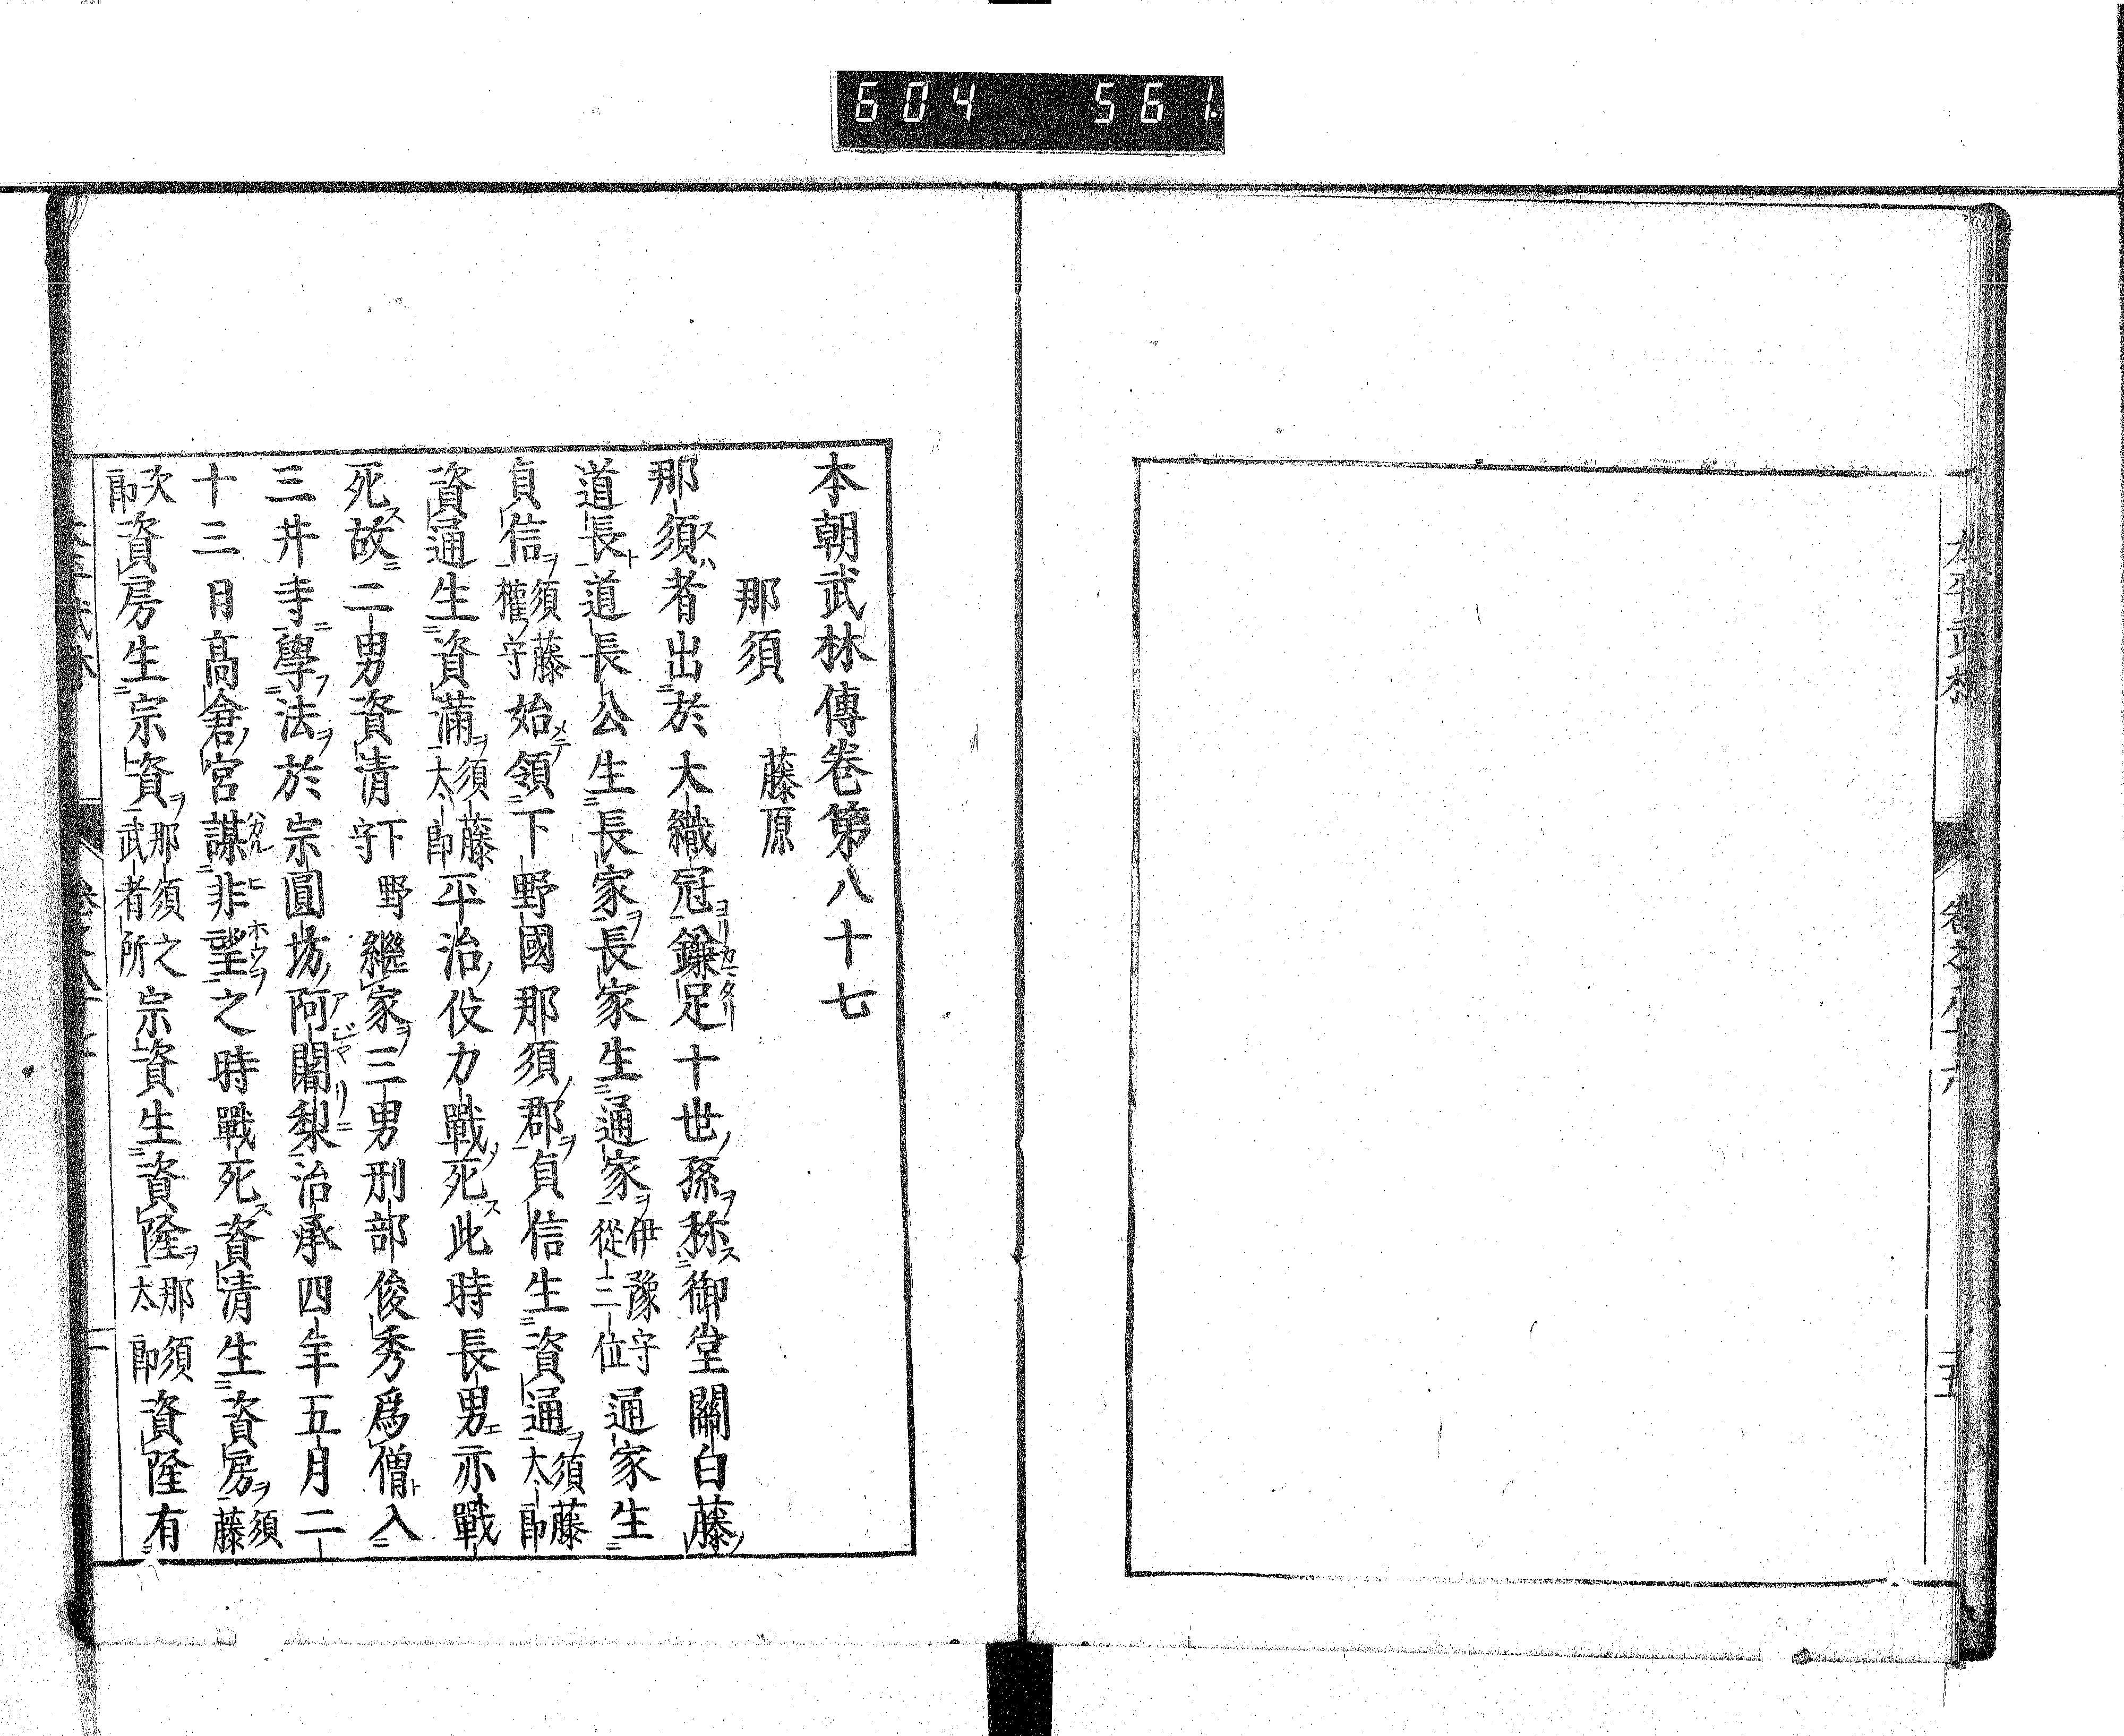 604 561
太平武林 卷之八十六 五
本朝武林傳卷第八十七
那須 藤原
那須者出於大織冠鎌足十世孫称御堂關白藤
道長道長公生長家長家生通家伊豫守從三位通家生
貞信須藤權守始領下野國那須郡貞信生資通須藤太郎
資通生資滿須藤太郎平治役力戰死此時長男亦戰
死故二男資清下野守繼家三男刑部俊秀爲僧入
三井寺學法於宗圓坊阿闍梨治承四年五月二
十三日高倉宮謀非望之時戰死資清生資房須藤
次郎資房生宗資那須之武者所宗資生資隆那須太郎資隆有